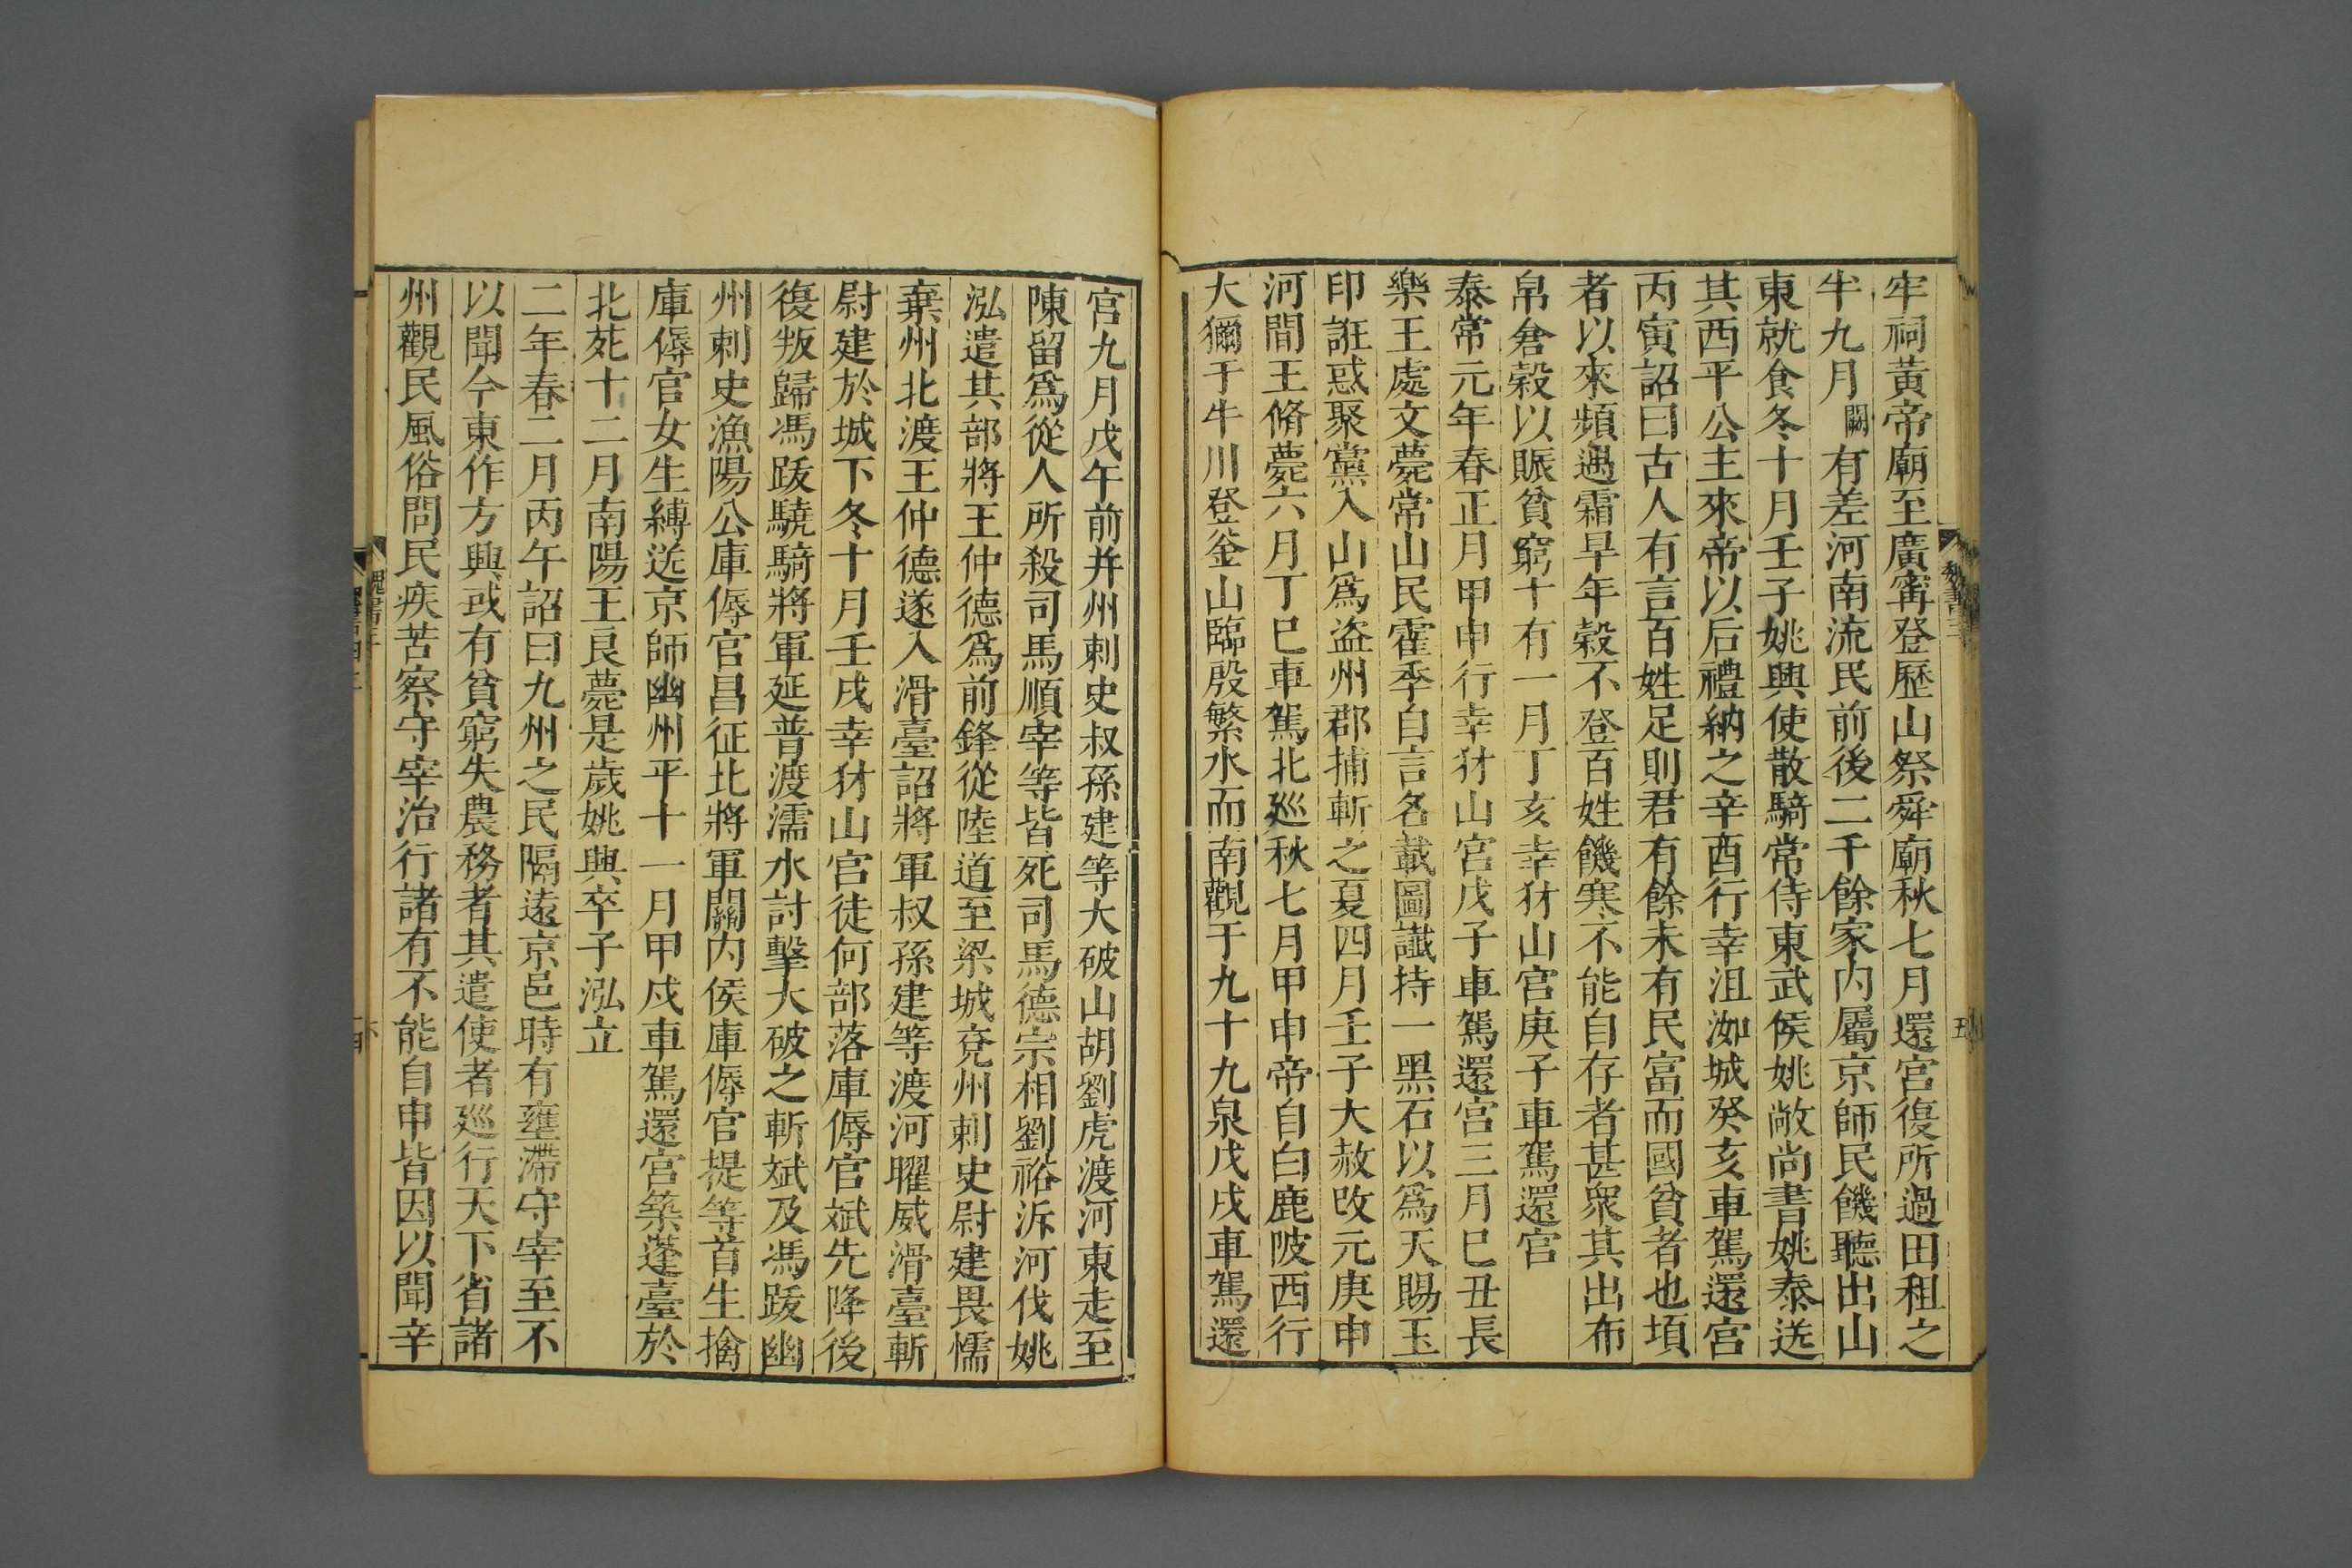 牢祠黃帝廟至廣甯登歷山祭舜廟秋七月還宮復所過田租之
半九月闕有差河南流民前後二千餘家內屬京師民饑聽出山
東就食冬十月壬子姚興使散騎常侍東武侯姚敞尚書姚泰送
其西平公主來帝以后禮納之辛酉行幸沮洳城癸亥車駕還宮
丙寅詔曰古人有言百姓足則君有餘未有民富而國貧者也頃
者以來頻遇霜旱年穀不登百姓饑寒不能自存者甚眾其出布
帛倉穀以賑貧窮十有一月丁亥幸犲山宮庚子車駕還宮
泰常元年春正月甲申行幸犲山宮戊子車駕還宮三月巳丑長
樂王處文薨常山民霍季自言名載圖讖持一黑石以爲天賜玉
印誑惑聚黨入山爲盜州郡捕斬之夏四月壬子大赦改元庚申
河間王脩薨六月丁巳車駕北廵秋七月甲申帝自白鹿陂西行
大獮于牛川登釜山臨殷繁水而南觀于九十九泉戊戌車駕還
宮九月戊午前并州刺史叔孫建等大破山胡劉虎渡河東走至
陳留爲從人所殺司馬順宰等皆死司馬德宗相劉裕泝河伐姚
泓遣其部將王仲德爲前鋒從陸道至梁城兗州刺史尉建畏懦
棄州北渡王仲德遂入滑臺詔將軍叔孫建等渡河曜威滑臺斬
尉建於城下冬十月壬戌幸犲山宮徒何部落庫傉官斌先降後
復叛歸馮跋驍騎將軍延普渡濡水討擊大破之斬斌及馮跋幽
州刺史漁陽公庫傉官昌征北將軍關內侯庫傉官提等首生擒
庫傉官女生縛送京師幽州平十一月甲戌車駕還宮築蓬臺於
北苑十二月南陽王良薨是歲姚興卒子泓立
二年春二月丙午詔曰九州之民隔遠京邑時有壅滯守宰至不
以聞今東作方興或有貧窮失農務者其遣使者廵行天下省諸
州觀民風俗問民疾苦察守宰治行諸有不能自申皆因以聞辛